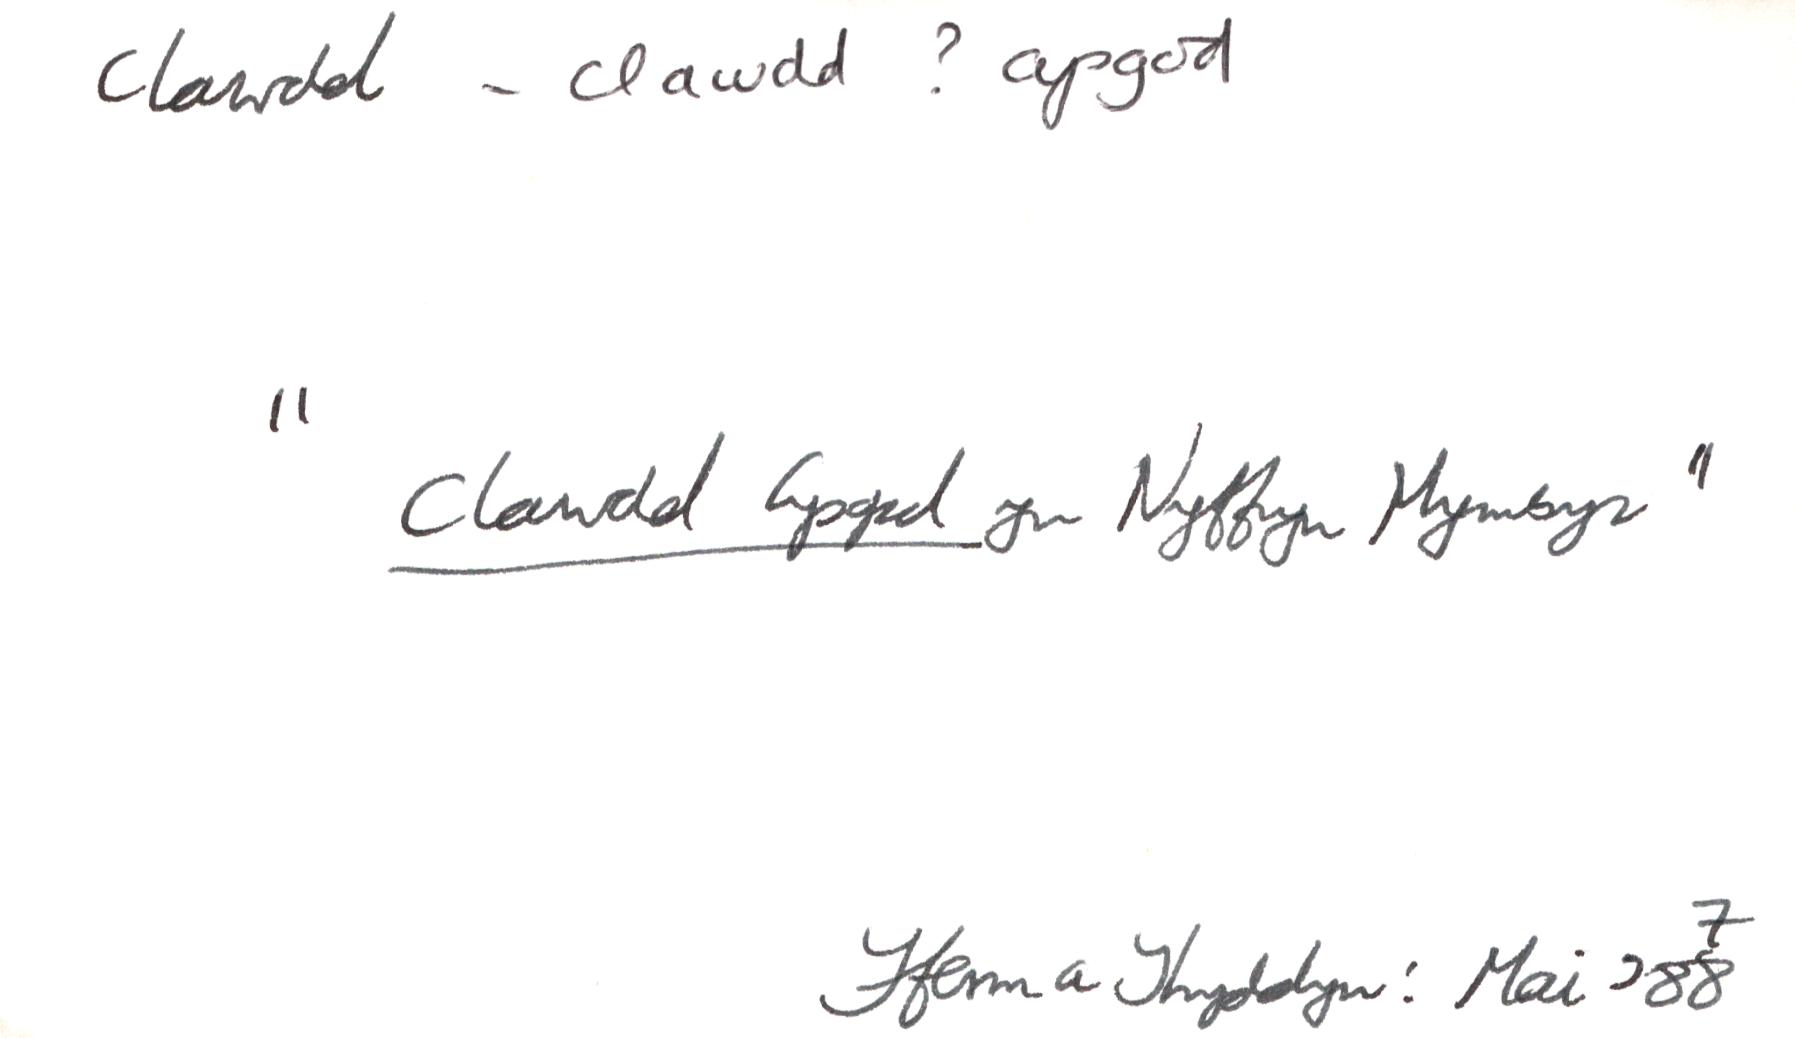 Clawdd - clawdd ? cypgod
" Clawdd Cypgod yn Nyffryn Mymbyr "
Fferm a Thyddyn: Mai '88 7